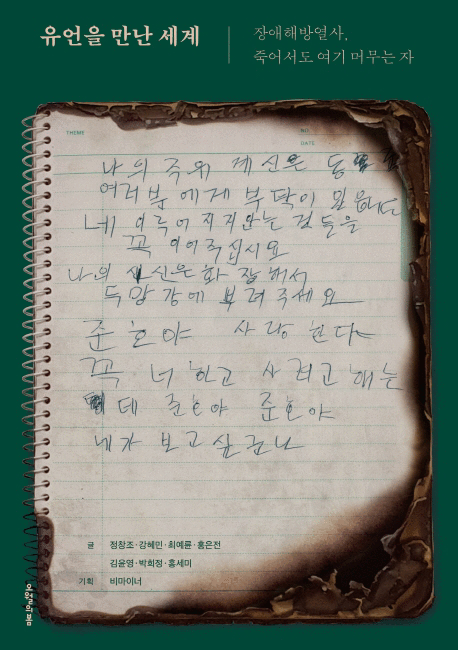 유언을 만난 세계
장애해방열사,
죽어서도 여기 머무는 자
THEME
NO.
DATE
나의 죽위 제 신은 동
여러분에게 부탁이 있읍니다
네 이루어지지않는 것들을
꼭 이어주십시요
나의 시신은 화장해서
두만강에 뿌려주세요
준호야 사랑한다
꼭 너하고 사려고 해는
데 준호야 준호야
네가 보고싶구나
글 정창조·강혜민·최예륜·홍은전
김윤영·박희정·홍세미
기획 비마이너
오월의봄